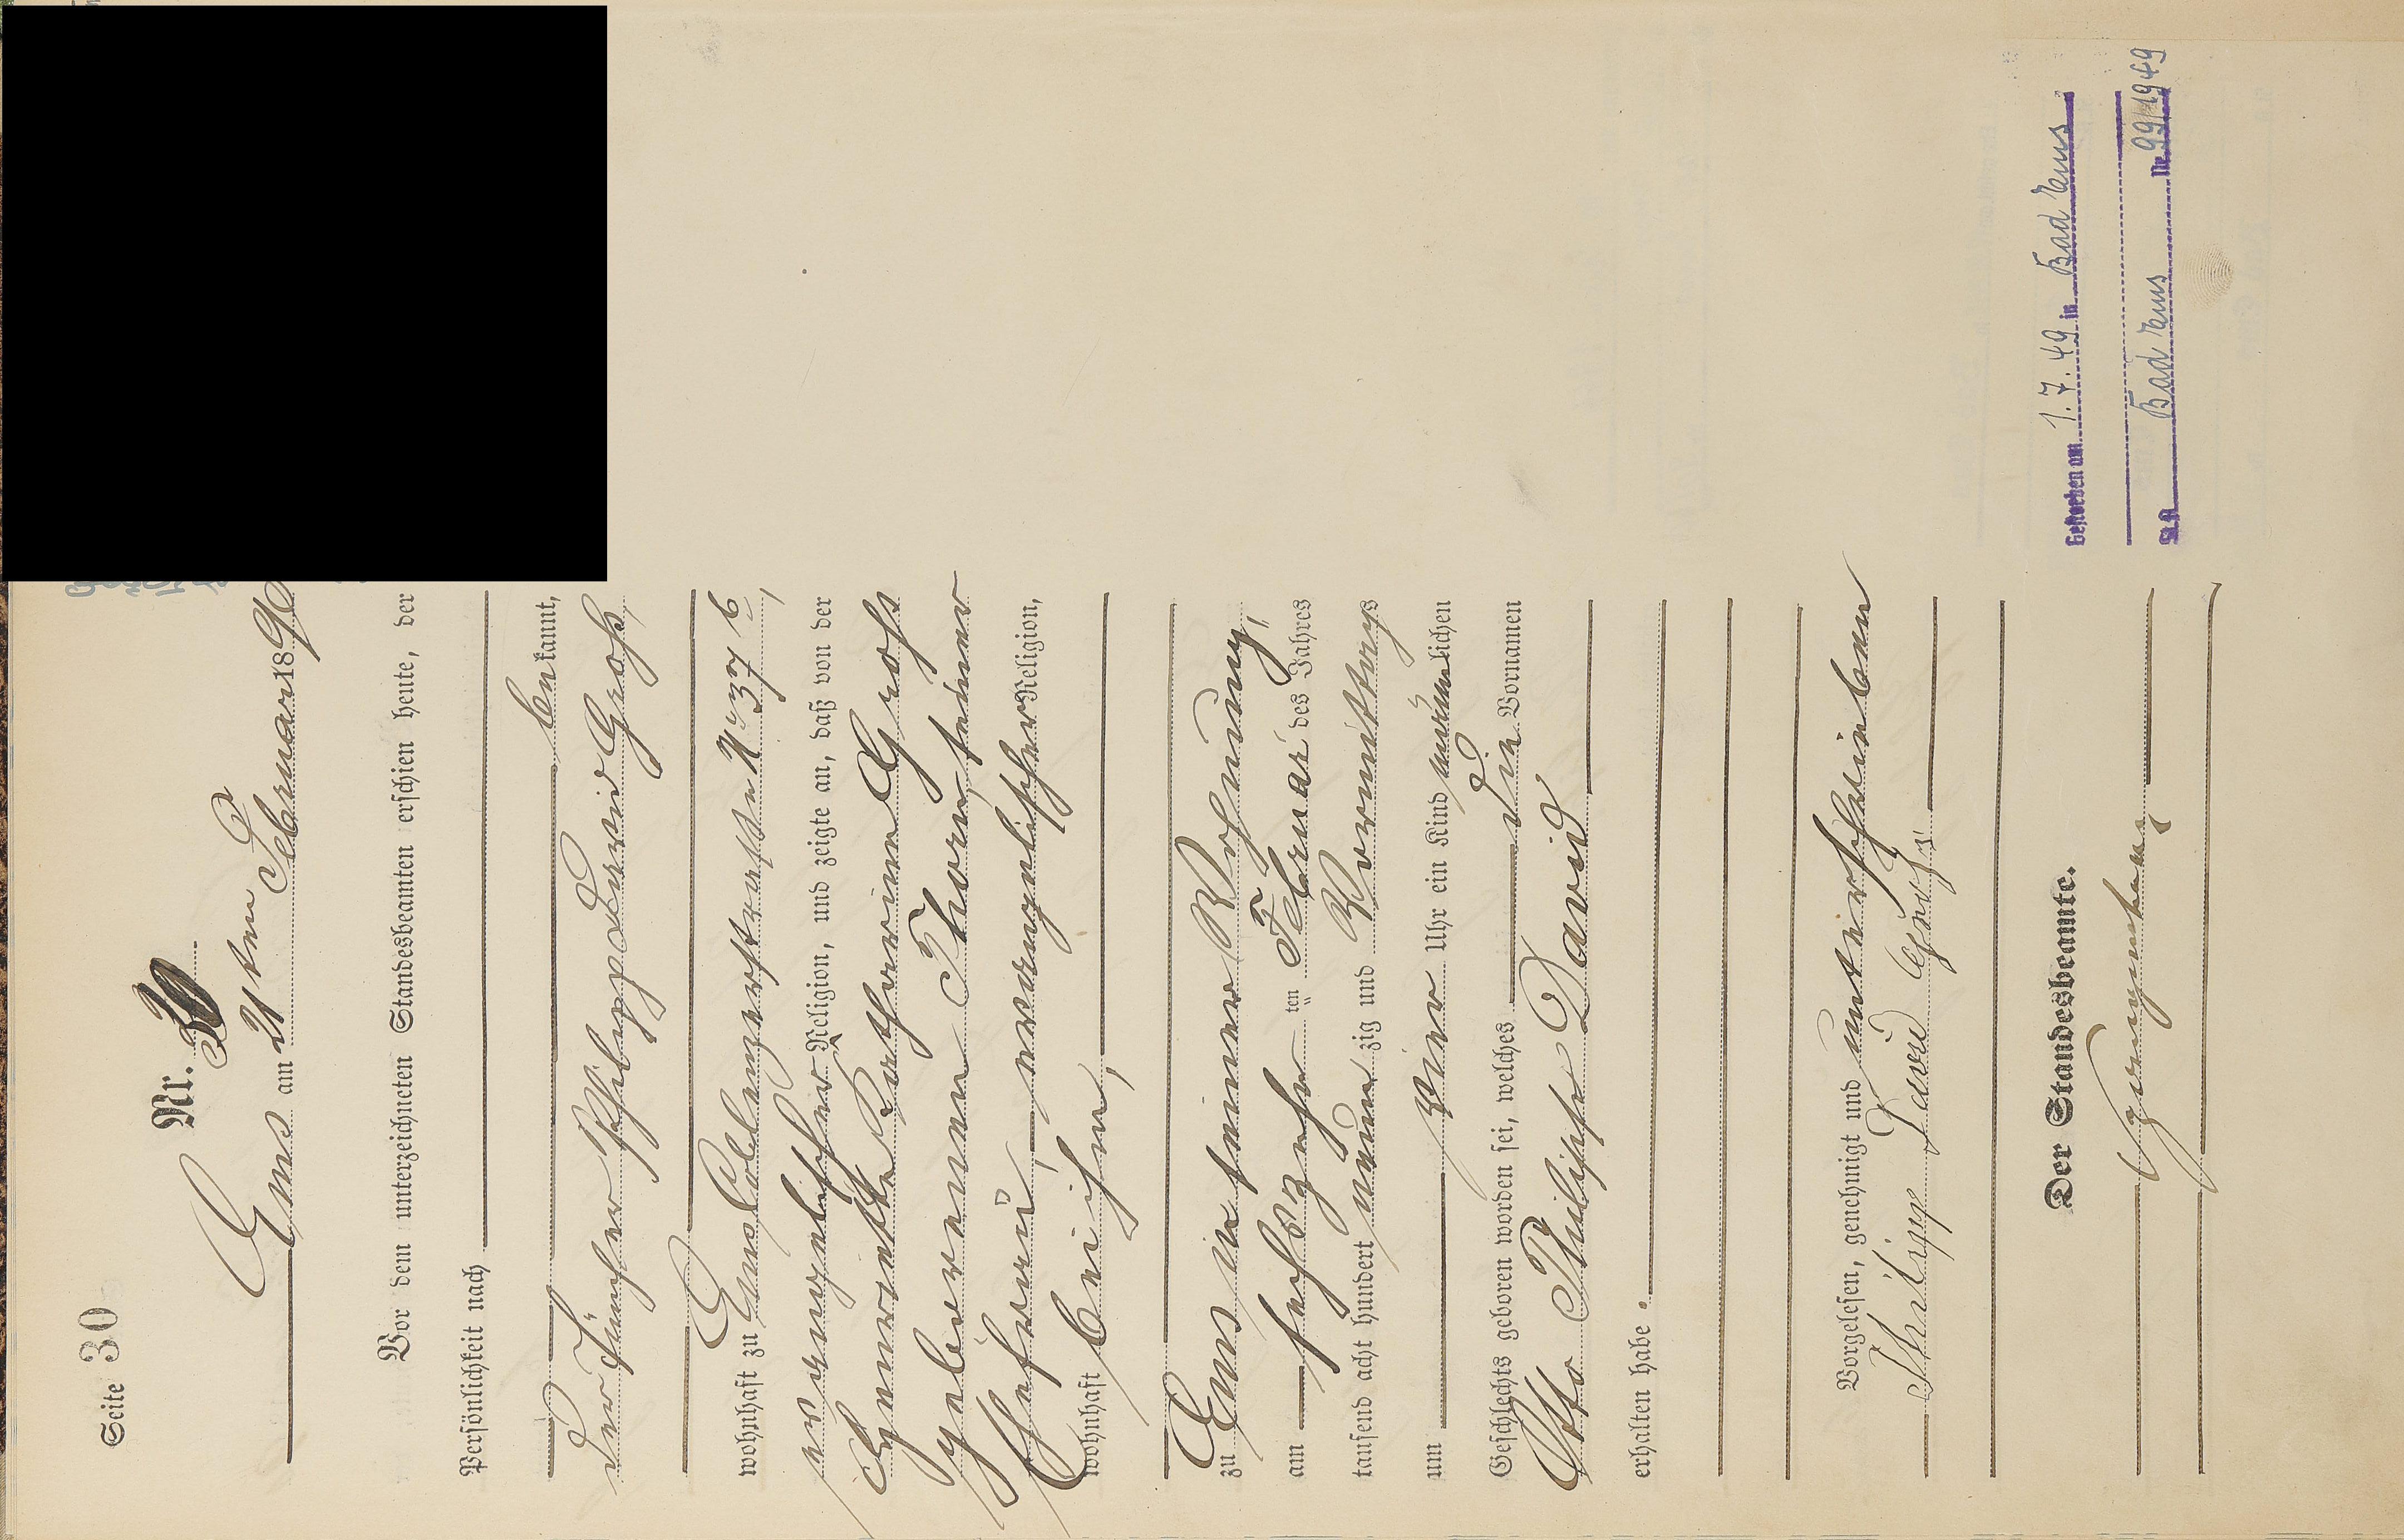 Seite 30
Nr. 30
Ems am 21 ten Februar 1890
Vor dem unterzeichneten Standesbeamten erschien heute, der
Persönlichkeit nach
bekannt,
der Tüncher Philipp David Groß,
wohnhaft zu Ems Coblenzerstraße No 37 b,
evangelischer Religion, und zeigte an, daß von der
Henriette Katharine Groß
geborenen Thorn, seiner
Ehefrau, evangelischer Religion,
wohnhaft bei ihm,
zu Ems in seiner Wohnung,
am sechszehn ten Februar des Jahres
tausend acht hundert neunzig und Vormittags
um vier Uhr ein Kind männlichen
Geschlechts geboren worden sei, welches die Vornamen
Otto Philipp David
erhalten habe.
Vorgelesen, genehmigt und unterschrieben
Philipp David Groß
Der Standesbeamte.
Gestorben am 1.7.49 in Bad Ems
St.A. Bad Ems Nr. 99/1949